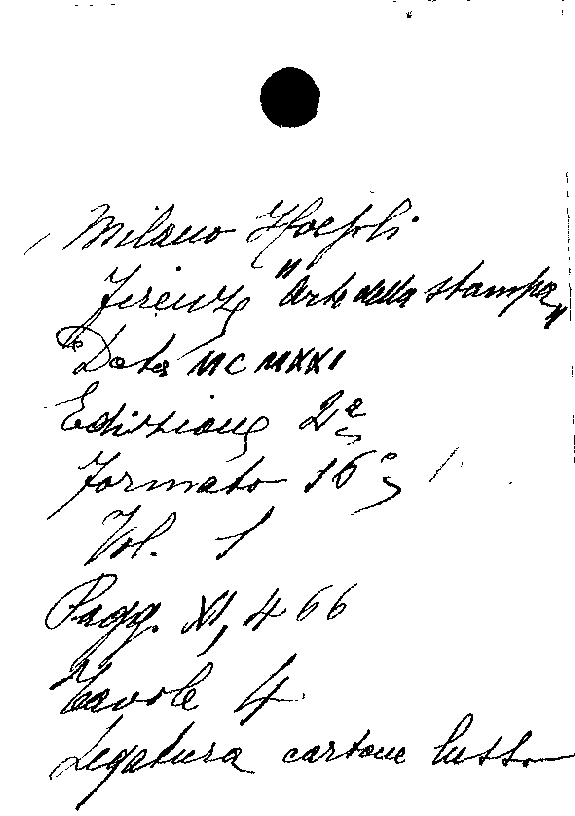 Milano Hoepli
Firenze "Arte della stampa"
Data MCMXXI
Edizione 2ª
Formato 16°
Vol. 1
Pagg. XI, 466
Tavole 4
Legatura cartone lusso